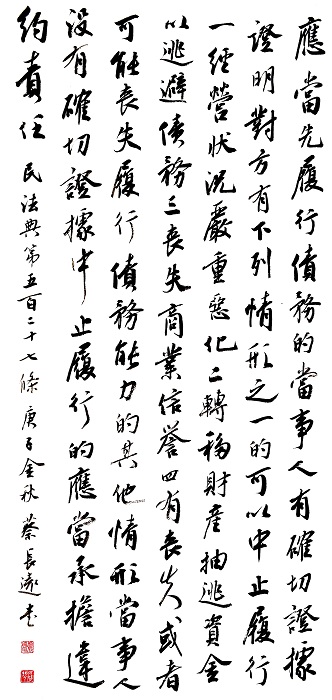 應當先履行債務的當事人有確切證據
證明對方有下列情形之一的可以中止履行
一經營狀況嚴重惡化二轉移財產抽逃資金
以逃避債務三喪失商業信譽四有喪失或者
可能喪失履行債務能力的其他情形當事人
沒有確切證據中止履行的應當承擔違
約責任 民法典第五百二十七條 庚子金秋 蔡長遠書